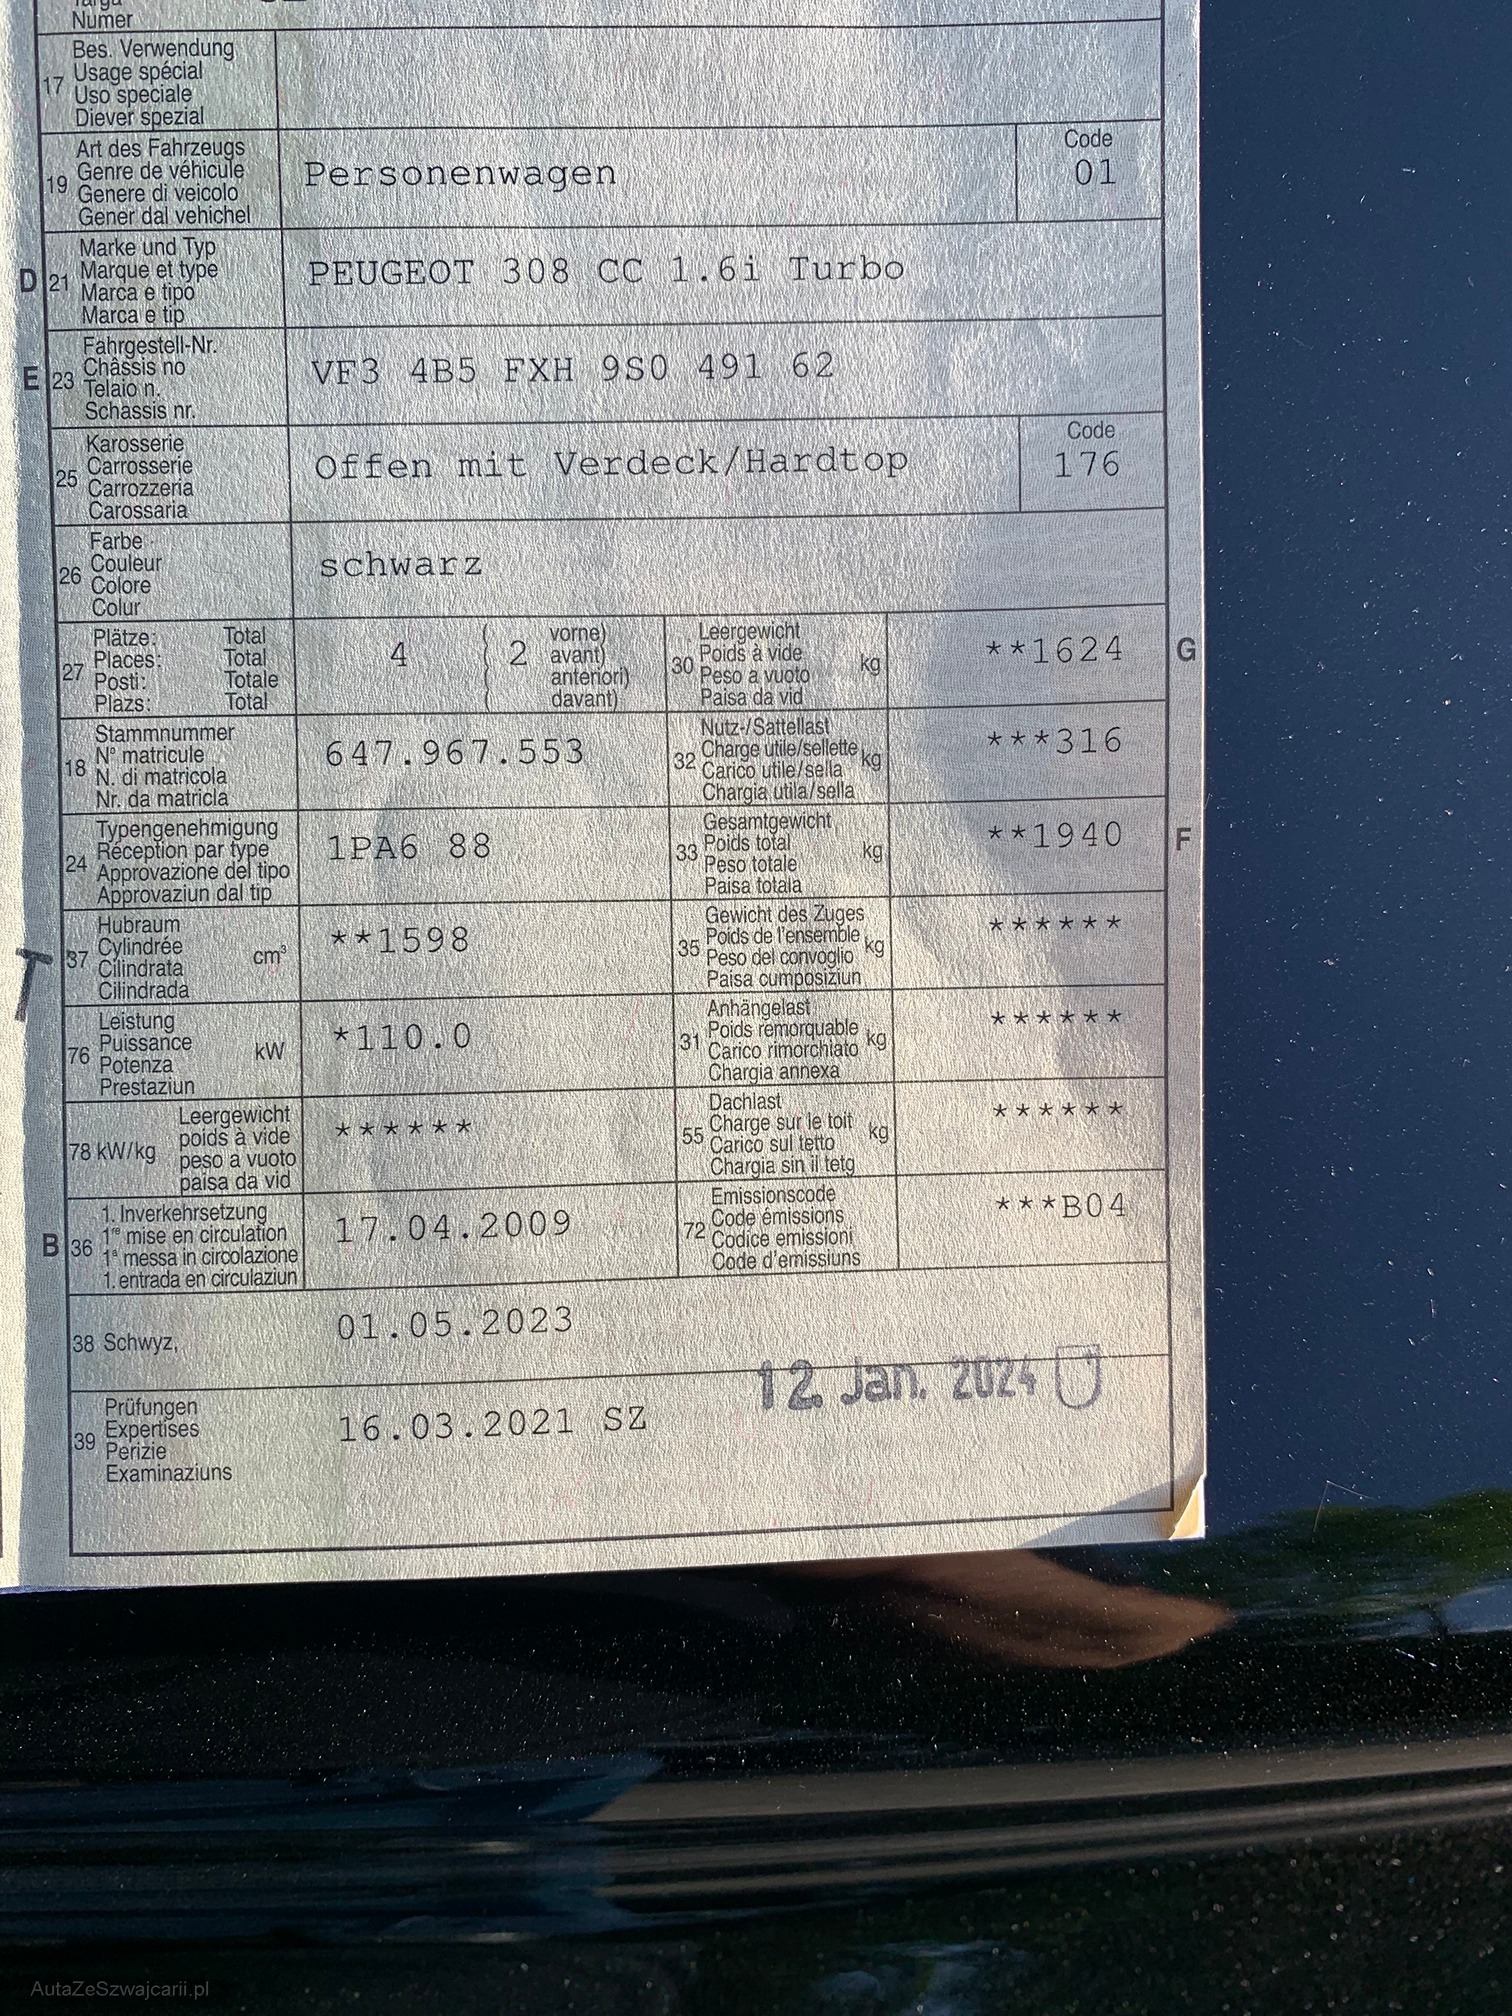 Targa
Numer
17
Bes. Verwendung
Usage spécial
Uso speciale
Diever spezial
19
Art des Fahrzeugs
Genre de véhicule
Genere di veicolo
Gener dal vehichel
Personenwagen
Code
01
D
21
Marke und Typ
Marque et type
Marca e tipo
Marca e tip
PEUGEOT 308 CC 1.6i Turbo
E
23
Fahrgestell-Nr.
Châssis no
Telaio n.
Schassis nr.
VF3 4B5 FXH 9S0 491 62
25
Karosserie
Carrosserie
Carrozzeria
Carossaria
Offen mit Verdeck/Hardtop
Code
176
26
Farbe
Couleur
Colore
Colur
schwarz
27
Plätze: Total
Places: Total
Posti: Totale
Plazs: Total
4
( 2 vorne)
( avant)
( anteriori)
( davant)
30
Leergewicht
Poids à vide
Peso a vuoto
Paisa da vid
kg
**1624
G
18
Stammnummer
N° matricule
N. di matricola
Nr. da matricla
647.967.553
32
Nutz-/Sattellast
Charge utile/sellette
Carico utile/sella
Chargia utila/sella
kg
***316
24
Typengenehmigung
Réception par type
Approvazione del tipo
Approvaziun dal tip
1PA6 88
33
Gesamtgewicht
Poids total
Peso totale
Paisa totala
kg
**1940
F
37
Hubraum
Cylindrée
Cilindrata
Cilindrada
cm³
**1598
35
Gewicht des Zuges
Poids de l'ensemble
Peso del convoglio
Paisa cumposiziun
kg
******
76
Leistung
Puissance
Potenza
Prestaziun
kW
*110.0
31
Anhängelast
Poids remorquable
Carico rimorchiato
Chargia annexa
kg
******
78 kW/kg
Leergewicht
poids à vide
peso a vuoto
paisa da vid
******
55
Dachlast
Charge sur le toit
Carico sul tetto
Chargia sin il tetg
kg
******
B
36
1. Inverkehrsetzung
1re mise en circulation
1a messa in circolazione
1. entrada en circulaziun
17.04.2009
72
Emissionscode
Code émissions
Codice emissioni
Code d'emissiuns
***B04
38 Schwyz,
01.05.2023
12. Jan. 2024
39
Prüfungen
Expertises
Perizie
Examinaziuns
16.03.2021 SZ
AutaZeSzwajcarii.pl